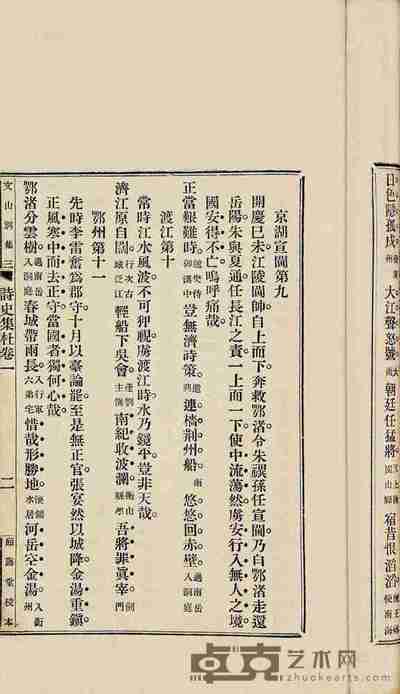 日色隱孤戍 大江聲怒號 朝廷任猛將 宿昔恨滔滔
京湖宣閫第九
開慶己未江陵閫帥自上而下奔救鄂渚今朱禩孫任宣閫乃自鄂渚走還
岳陽朱與夏通任長江之責一上而一下使中流蕩然虜安行入無人之境
國安得不亡嗚呼痛哉
正當艱難時 豈無濟時策 連檣荆州船 悠悠回赤壁 過南岳入洞庭
渡江第十
常時江水風波不可狎視虜渡江時水乃鏡平豈非天哉
濟江原自闊 輕船下吳會 南紀收波瀾 吾將罪眞宰
鄂州第十一
先時李雷奮爲郡守十月以臺論罷至是無正官張宴然以城降金湯重鎭
正風寒中而去正守當國者獨何心哉
鄂渚分雲樹 過南岳入洞庭 春城帶雨長 惜哉形勝地 河岳空金湯
文山別集三
詩史集杜卷一
二
卓克艺术网
www.zhuokearts.com